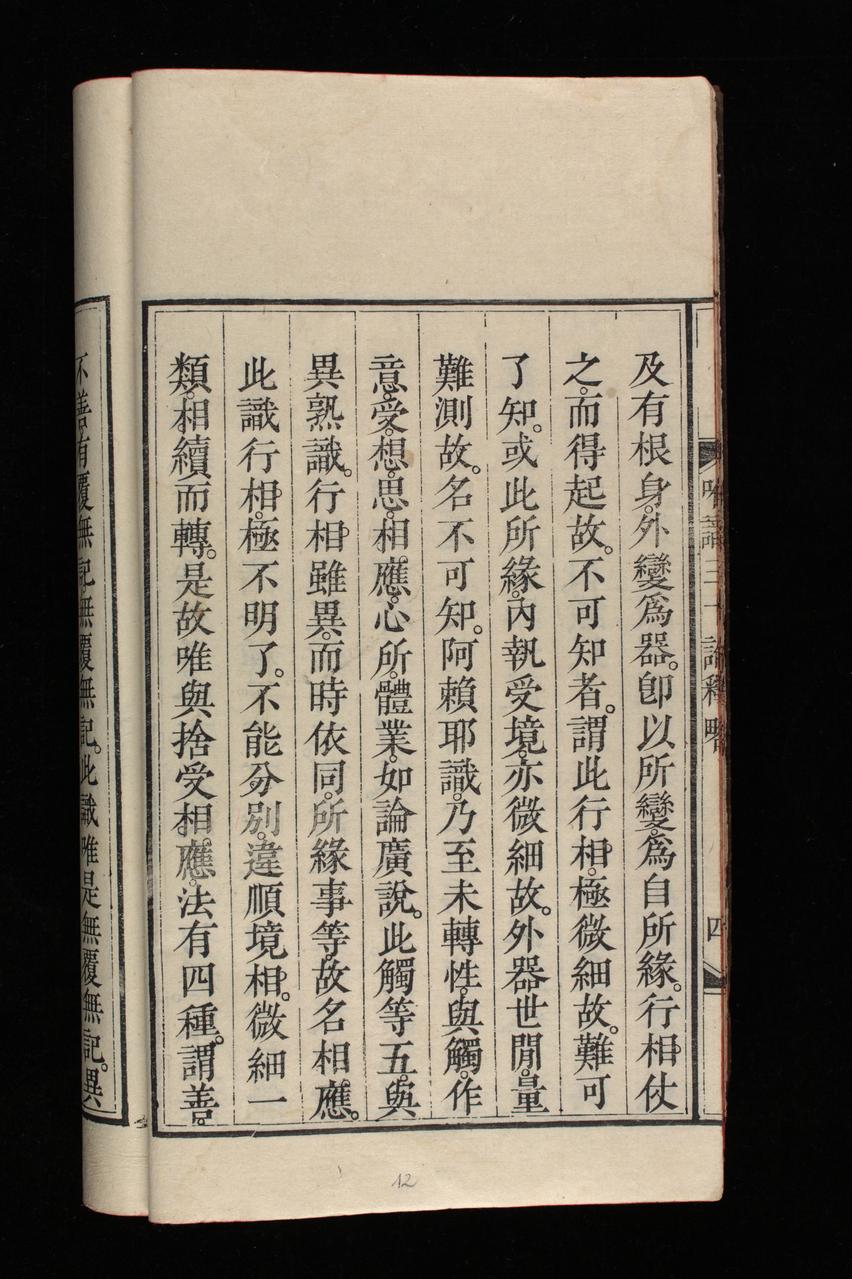 唯識三十論釋略
四
及有根身。外變爲器。卽以所變。爲自所緣。行相仗
之。而得起故。不可知者。謂此行相。極微細故。難可
了知。或此所緣。內執受境。亦微細故。外器世閒。量
難測故。名不可知。阿賴耶識。乃至未轉性。與觸。作
意。受。想。思。相應。心所。體業。如論廣說。此觸等五。與
異熟識。行相雖異。而時依同。所緣事等。故名相應。
此識行相。極不明了。不能分別。違順境相。微細一
類。相續而轉。是故唯與捨受相應。法有四種。謂善。
不善。有覆無記。無覆無記。此識唯是無覆無記。異
12